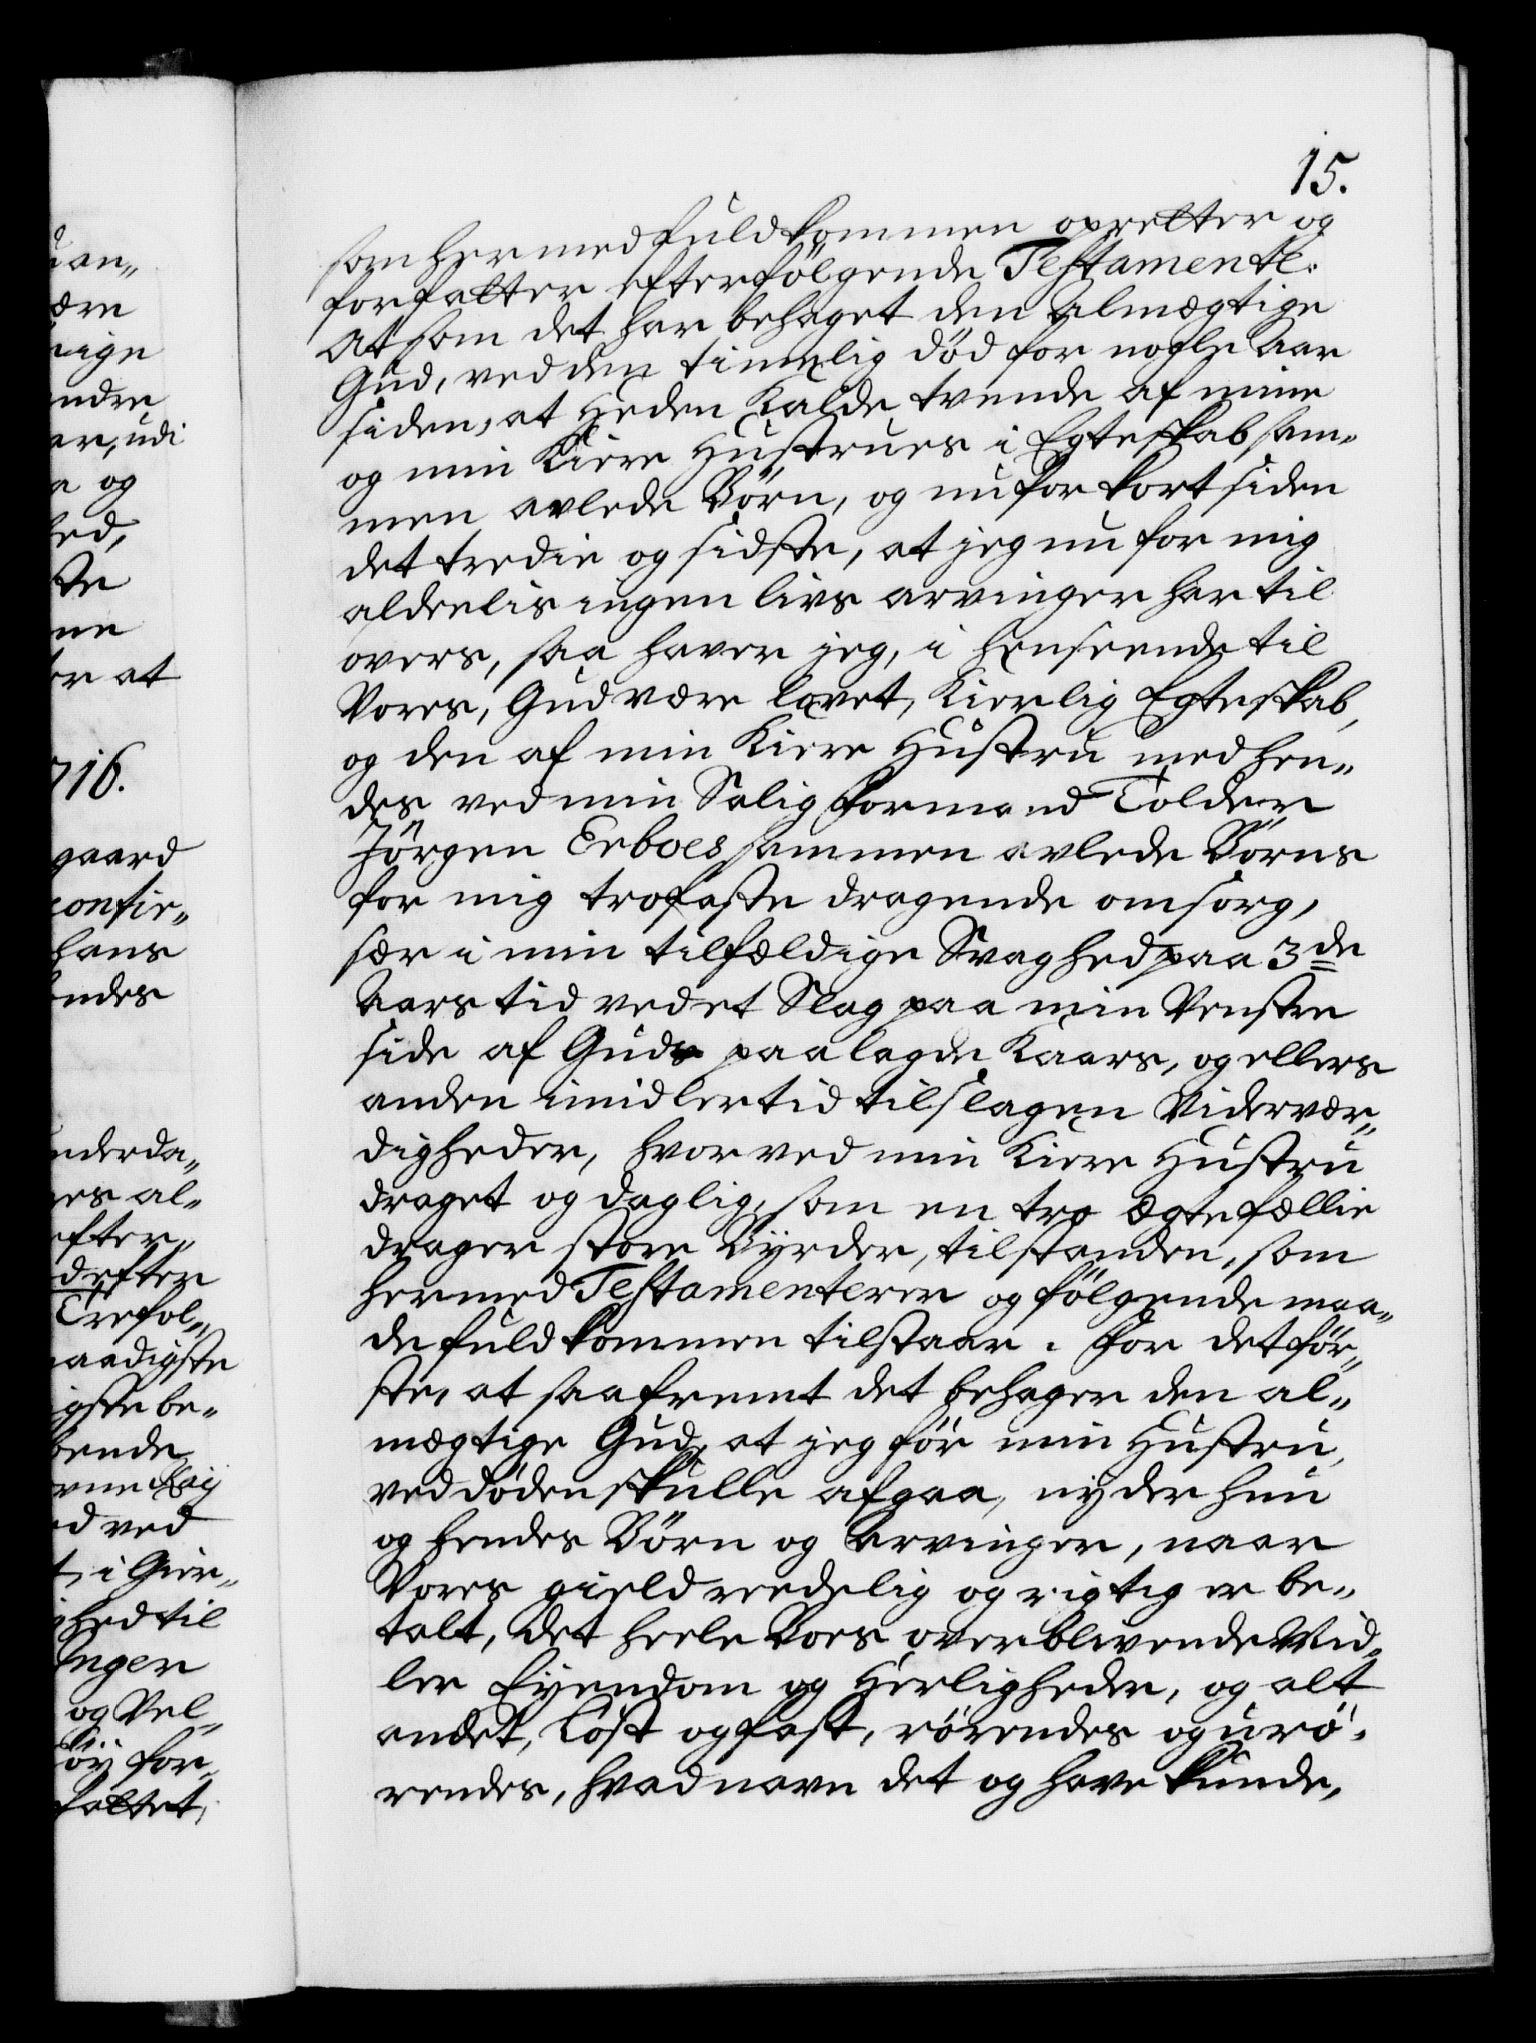 15.
som hermed fuldkommen opretter og
forfatter efterfölgende Testamente:
At som det har behaget den Almægtige
Gud, ved den timelig död for nogle Aar
siden, at Heden Kalde tvende af mine
og min Kiere Hustrues i Egteskab sam„
men avlede Börn, og nu for kort siden
det tredie og sidste, at jeg nu for mig
aldeelis ingen livs arvinger har til
overs, saa haver jeg, i henseende til
Vores, Gud være lovet, Kierlig Egteskab,
og den af min Kiere Hustru med hen„
des ved min Salig formand Tolder
Jörgen Erboes sammen avlede Börns
for mig trofaste dragende omsorg,
sær i min tilfældige Svaghed paa 3de
Aars tid ved et Slag paa min Venstre
side af Gud paalagde Kaars, og ellers
anden imidlertid tilslagen Widervær„
digheder, hvorved min Kiere Hustru
draget og daglig, som en tro ægtefællie
drager store Byrder, tilstanden, som
hermed Testamenterer og fölgende maa„
de fuldkommen tilstaar. For det för„
ste, at saafremt det behager den al„
mægtige Gud, at jeg för min Hustru,
ved döden skulle afgaa, nyder hun
og hendes Börn og Arvinger, naar
Vores gield reedelig og rigtig er be„
talt, det heele Boes overblivende Mid„
ler Eyendom og Herligheder, og alt
andet, löst og fast, rörendes og urö„
rendes, hvad navn det og have kunde,
uan„
ære
ndre
er, udi
og
hed,
ste
ne
er at
716.
gaard
confir„
hans
endes
nderda„
es al„
efter„
defter
Trefol„
naadigste
igste be„
bende
Kaij
d ved
t, i Gier„
hed til
nger
og Vel„
öy for„
fattet,